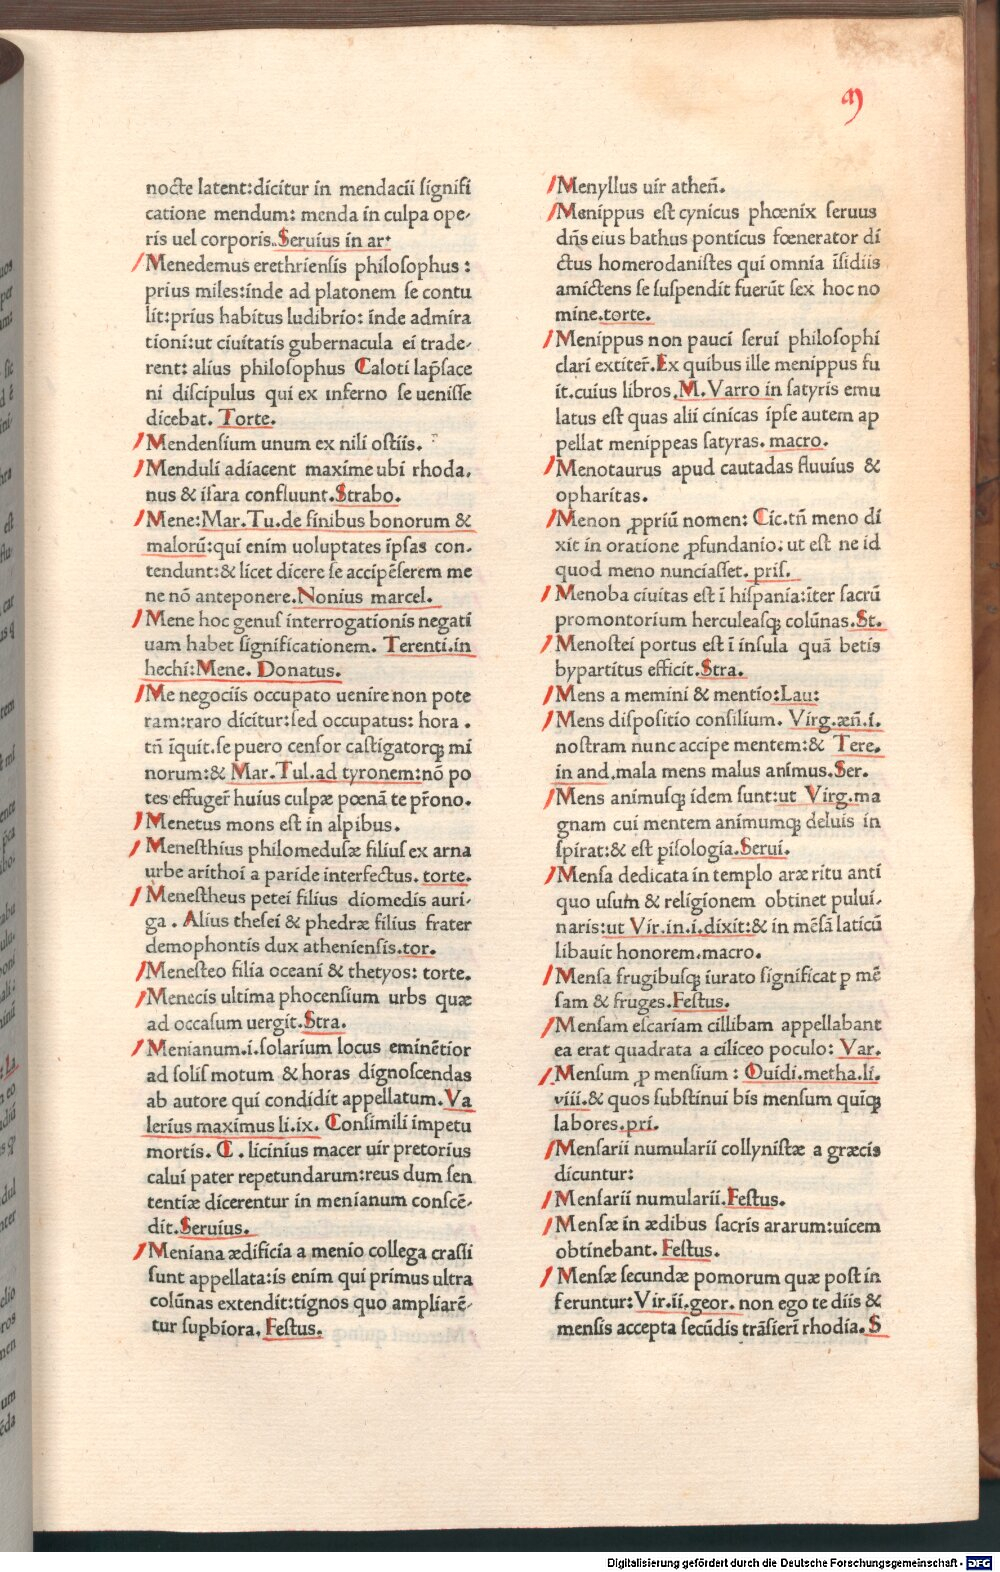 M
nocte latent:dicitur in mendacii signifi
catione mendum: menda in culpa ope-
ris uel corporis..Seruius in ar
Menedemus erethriensis philosophus :
prius miles:inde ad platonem se contu
lit:prius habitus ludibrio: inde admira
tioni:ut ciuitatis gubernacula ei trade-
rent: alius philosophus Caloti lap̄sace
ni discipulus qui ex inferno se uenisse
dicebat. Torte.
Mendensium unum ex nili ostiis.
Menduli adiacent maxime ubi rhoda.
nus & isara confluunt.Strabo.
Mene:Mar.Tu.de finibus bonorum &
malorū:qui enim uoluptates ipsas con-
tendunt:& licet dicere se accipēserem me
ne nō anteponere.Nonius marcel.
Mene hoc genus interrogationis negati
uam habet significationem. Terenti.in
hechi:Mene. Donatus.
Me negociis occupato uenire non pote
ram:raro dicitur:sed occupatus: hora .
tn̄ īquit.se puero censor castigatorqꝫ mi
norum:& Mar.Tul.ad tyronem:nō po
tes effuger̄ huius culpæ pœnā te pr̄ono.
Menetus mons est in alpibus.
Menesthius philomedusæ filius ex arna
urbe arithoi a paride interfectus. torte.
Menestheus petei filius diomedis auri-
ga . Alius thesei & phedræ filius frater
demophontis dux atheniensis.tor.
Menesteo filia oceani & thetyos: torte.
Menecis ultima phocensium urbs quæ
ad occasum uergit.Stra.
Menianum.i.solarium locus eminētior
ad solis motum & horas dignoscendas
ab autore qui condidit appellatum.Va
lerius maximus li.ix. Consimili impetu
mortis. C . licinius macer uir pretorius
calui pater repetundarum:reus dum sen
tentiæ dicerentur in menianum conscē-
dit.Seruius.
Meniana ædificia a menio collega crassi
sunt appellata:is enim qui primus ultra
colūnas extendit:tignos quo ampliarē-
tur supbiora. Festus.
Menyllus uir athen̄.
Menippus est cynicus phœnix seruus
dn̄s eius bathus ponticus fœnerator di
ctus homerodanistes qui omnia īsidiis
amictens se suspendit fuerūt sex hoc no
mine.torte.
Menippus non pauci serui philosophi
clari extiter̄.Ex quibus ille menippus fu
it.cuius libros.M.Varro in satyris emu
latus est quas alii cinicas ipse autem ap
pellat menippeas satyras. macro.
Menotaurus apud cautadas fluuius &
opharitas.
Menon ꝓpriū nomen: Cic.tn̄ meno di
xit in oratione ꝓfundanio. ut est ne id
quod meno nunciasset. pris.
Menoba ciuitas est ī hispania:iter sacrū
promontorium herculeasqꝫ colūnas.St.
Menostei portus est ī insula quā betis
bypartitus efficit.Stra.
Mens a memini & mentio:Lau:
Mens dispositio consilium. Virg.æn̄.i.
nostram nunc accipe mentem:& Tere.
in and.mala mens malus animus.Ser.
Mens animusqꝫ idem sunt:ut Virg.ma
gnam cui mentem animumqꝫ deluis in
spirat:& est pisologia.Serui.
Mensa dedicata in templo aræ ritu anti
quo usum & religionem obtinet pului-
naris:ut Vir.in.i.dixit:& in mēsā laticū
libauit honorem.macro.
Mensa frugibusqꝫ iurato significat p mē
sam & fruges.Festus.
Mensam escariam cillibam appellabant
ea erat quadrata a ciliceo poculo: Var.
Mensum ꝓ mensium : Ouidi.metha.li.
viii.& quos substinui bis mensum quiqꝫ
labores.pri.
Mensarii numularii collynistæ a græcis
dicuntur:
Mensarii numularii.Festus.
Mensæ in ædibus sacris ararum:uicem
obtinebant. Festus.
Mensæ secundæ pomorum quæ post in
feruntur:Vir.ii.geor. non ego te diis &
mensis accepta secūdis trāsieri rhodia.S
Digitalisierung gefördert durch die Deutsche Forschungsgemeinschaft - DFG